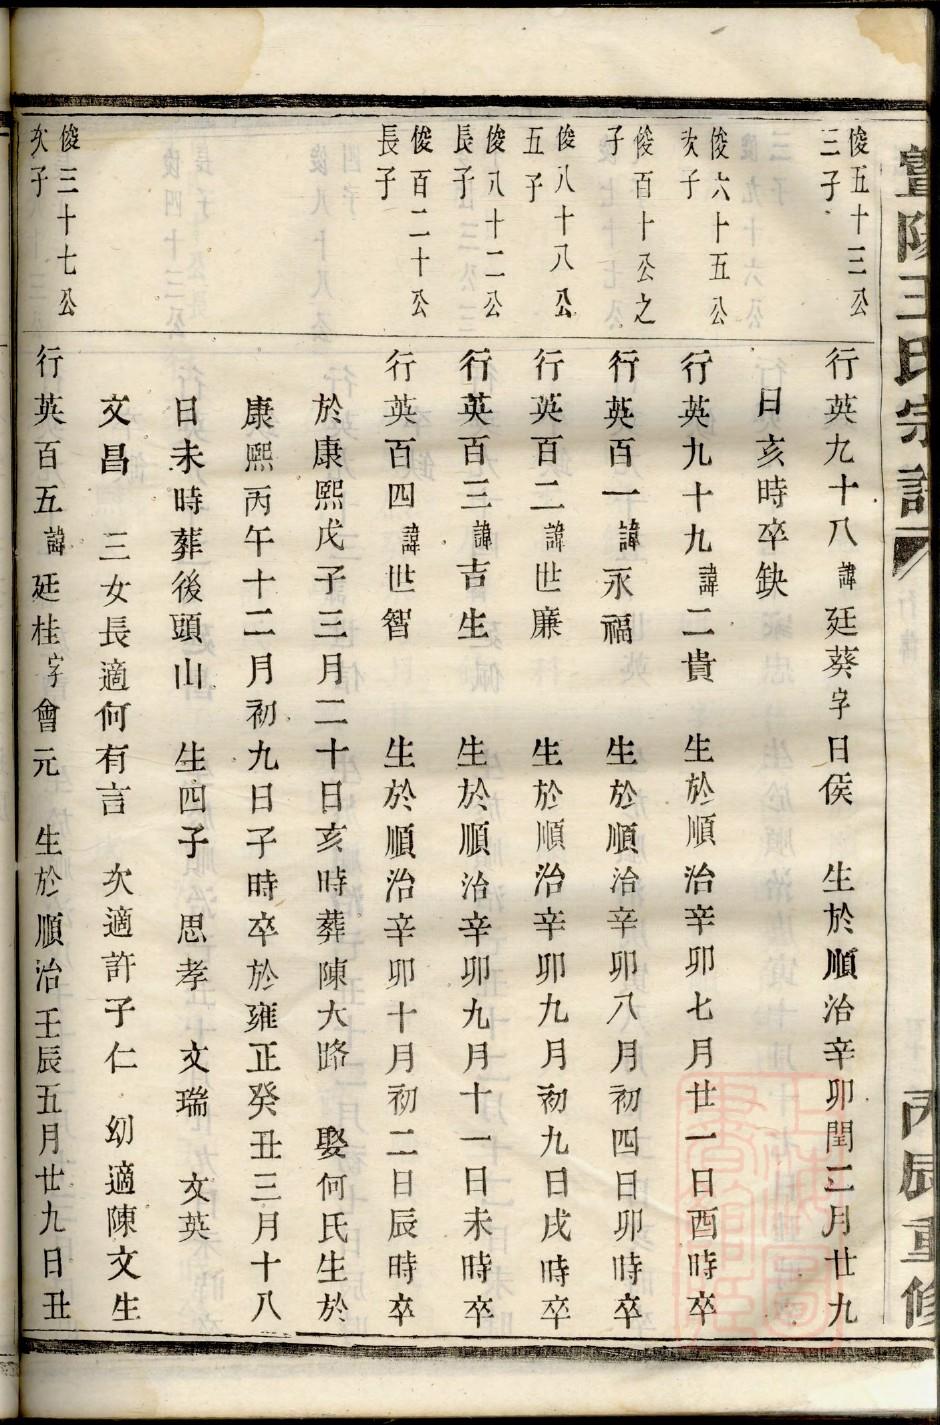 暨陽王氏宗譜
丙辰重修
俊五十三公
三子
行英九十八諱廷葵字日俟 生於順治辛卯閏二月廿九
日亥時卒缺
俊六十五公
次子
行英九十九諱二貴 生於順治辛卯七月廿一日酉時卒
俊百十公之
子
行英百一諱永福 生於順治辛卯八月初四日卯時卒
俊八十八公
五子
行英百二諱世廉 生於順治辛卯九月初九日戌時卒
俊八十二公
長子
行英百三諱吉生 生於順治辛卯九月十一日未時卒
俊百二十公
長子
行英百四諱世智 生於順治辛卯十月初二日辰時卒
於康熙戊子三月二十日亥時葬陳大路 娶何氏生於
康熙丙午十二月初九日子時卒於雍正癸丑三月十八
日未時葬後頭山 生四子 思孝 文瑞 文英
文昌 三女長適何有言 次適許子仁 幼適陳文生
俊三十七公
次子
行英百五諱廷桂字會元 生於順治壬辰五月廿九日丑